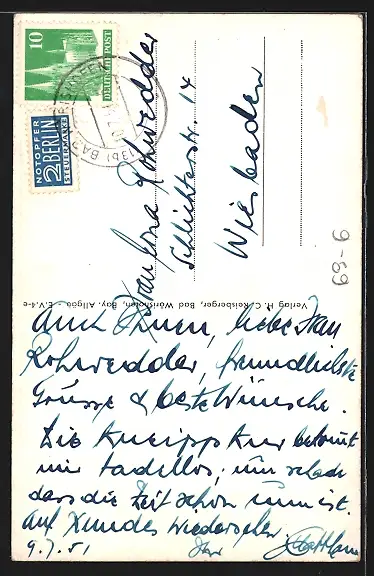 10
DEUTSCHE POST
NOTOPFER
2 BERLIN
STEUERMARKE
(13b) BAD
Frau
Rohwedder
Schlichterstr. 14
Wiesbaden
Verlag H. C. Reisberger, Bad Wörishofen, Bay. Allgäu E.V.4-e
69-6
Auch Ihnen, liebe Frau
Rohwedder, freundlichste
Grüsse & beste Wünsche.
Die Kneippkur bekommt
mir tadellos; nur schade
dass die Zeit schon um ist.
Auf Wiedersehen
9.7.51 Ihr